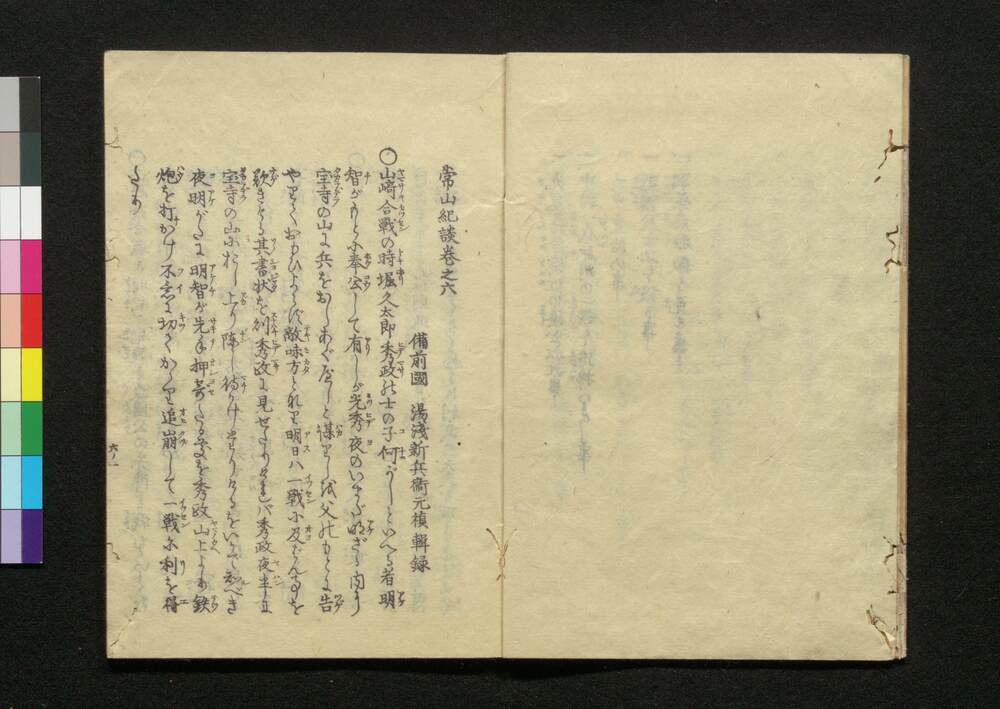 常山紀談巻之六
備前國 湯浅新兵衛元禎輯録
〇山崎合戰の時堀久太郎秀政の士の子何がしといへる者明
智がもとに奉公して有しが光秀夜のいまだ明ざる内より
宝寺の山に兵をおしあぐべしと謀りしを父のもとに告
やりておもひよらず敵味方とわかれ明日ハ一戰に及ばん事を
歎きける其書状を則秀政に見せたりければ秀政夜半に
宝寺の山におし上り陣し待かけ
夜明がたに明智が先手押寄たるを秀政山上より鉄
炮を打かけ不意に切てかゝり追崩して一戰に利を得
たり
六ノ一